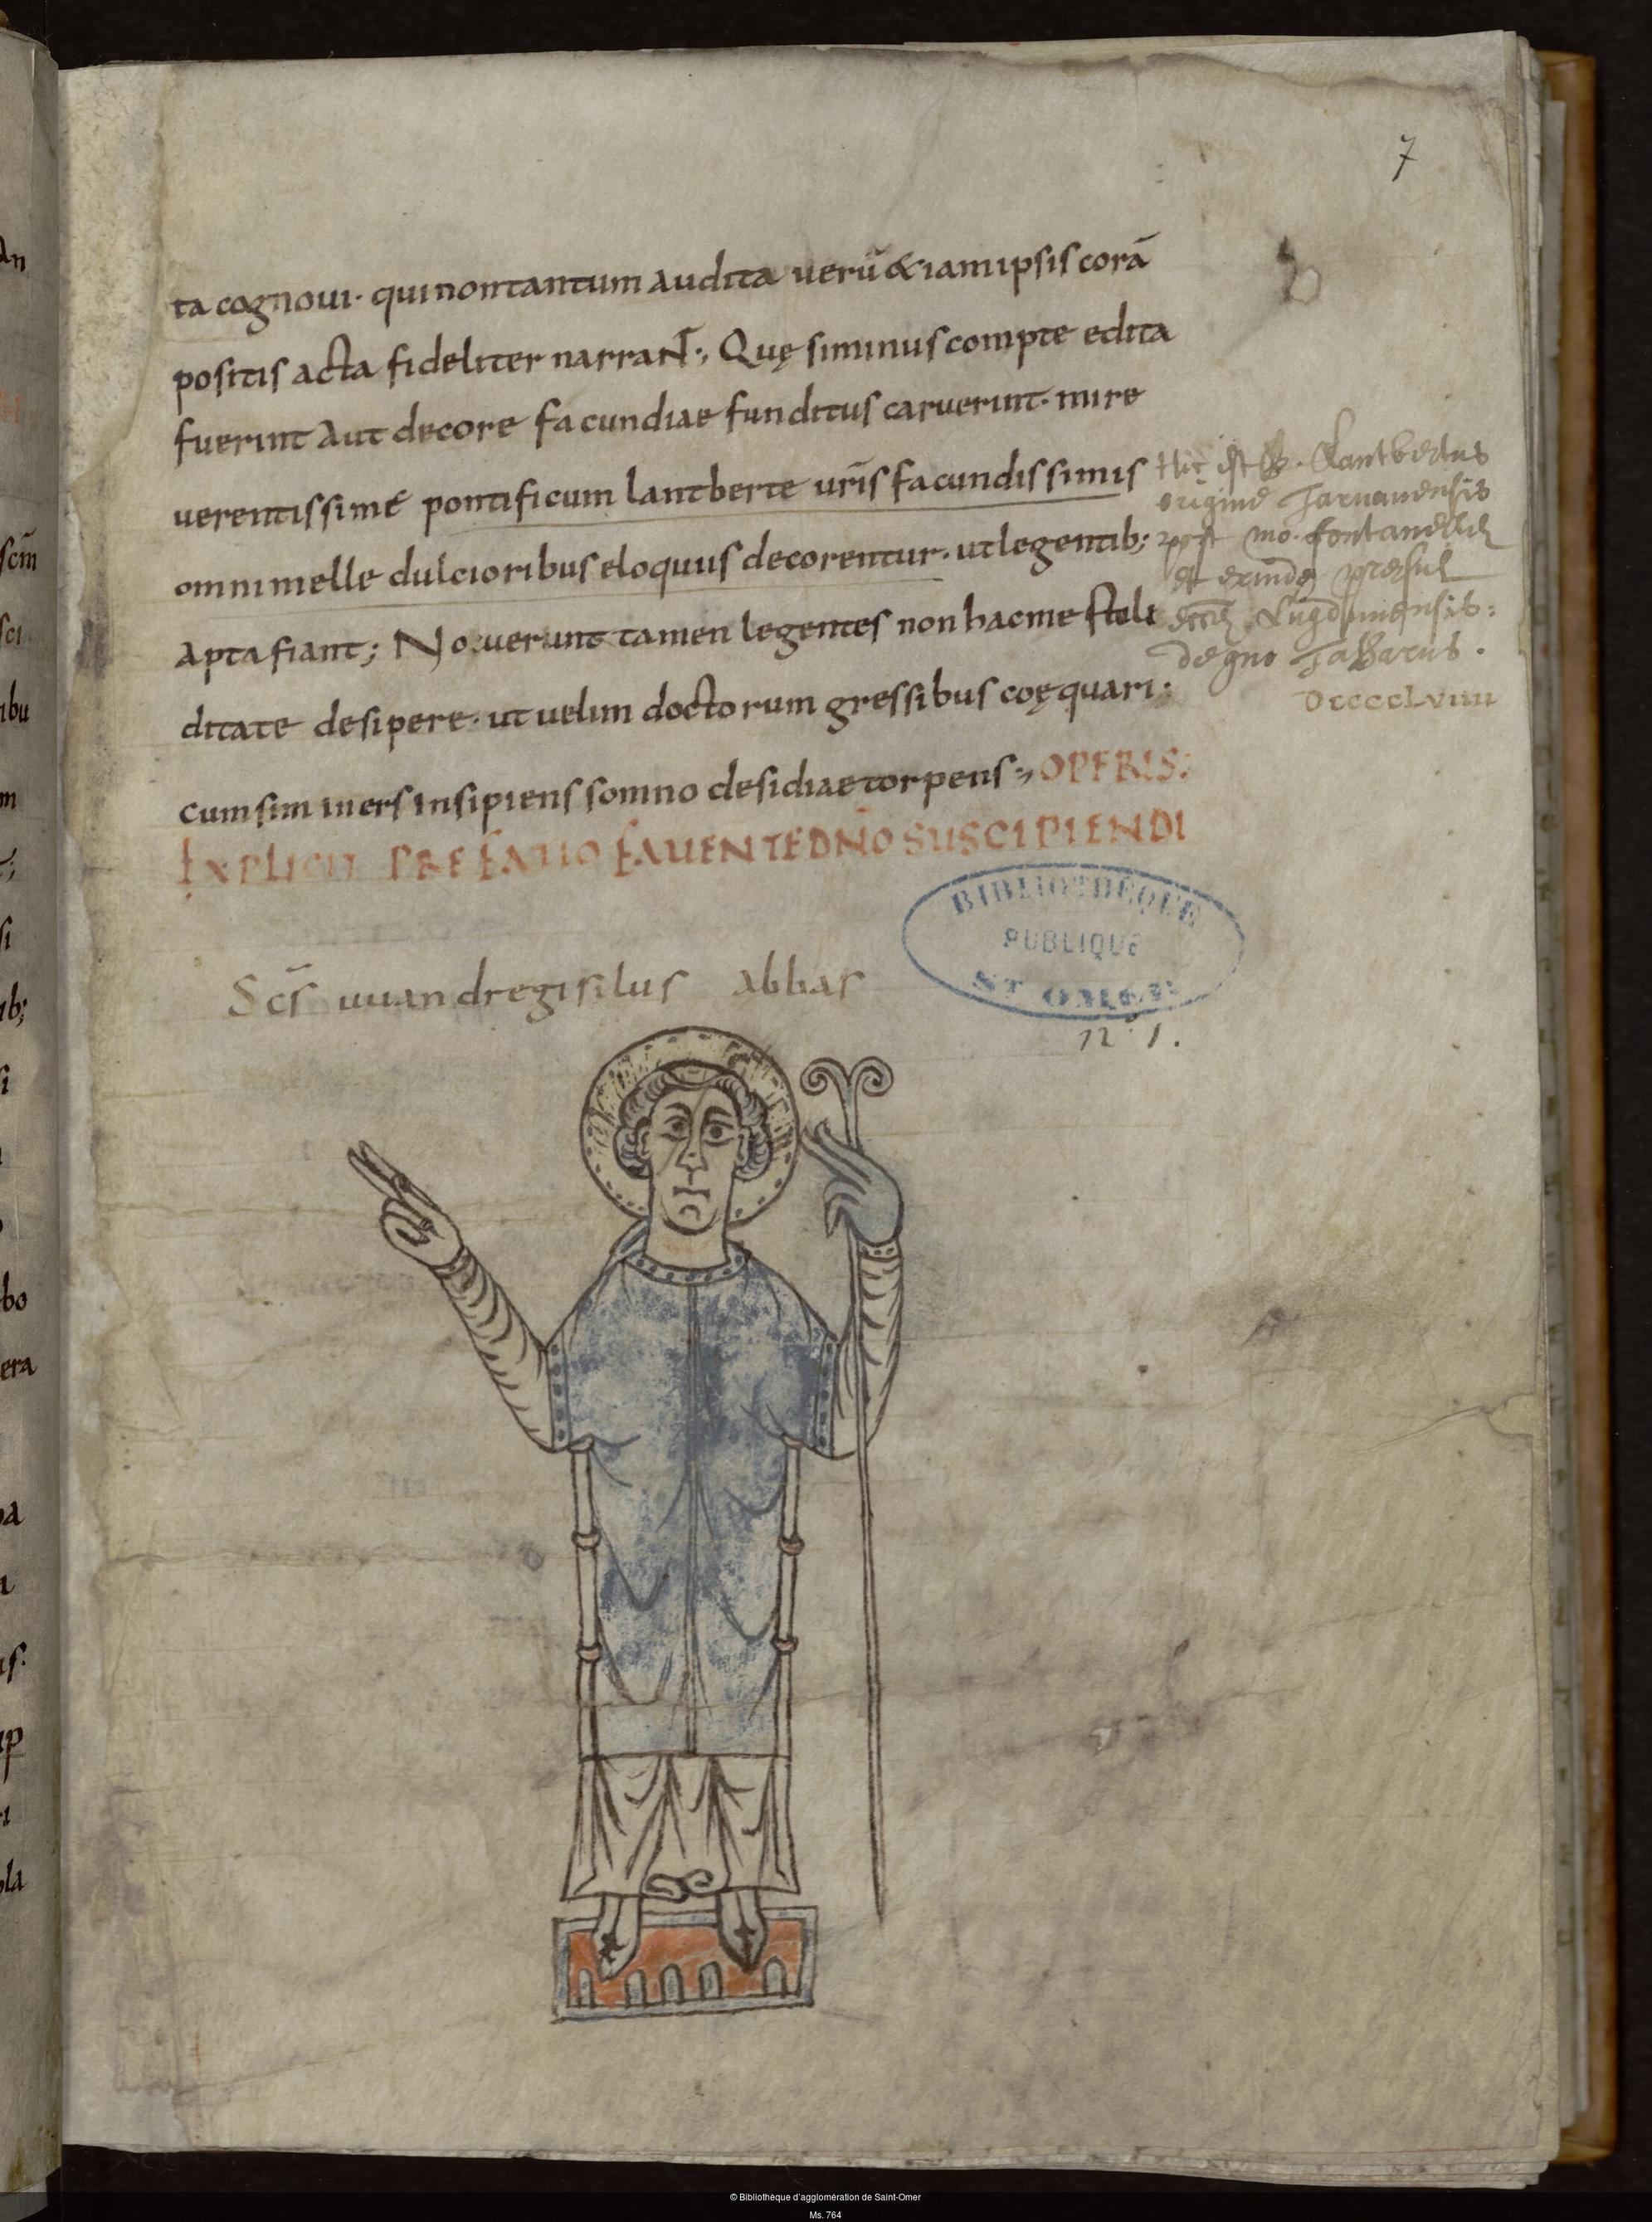 7
ta cognoui· qui non tantum audita uerū & iam ipsis corā
positis acta fideliter narraNT·, Quę si minus compte edita
fuerint aut decore facundiae funditus caruerint· mire
uerentissime pontificum lantberte ur̄is facundissimis
omni melle dulcioribus eloquiis decorentur· ut legentib;
apta fiant; Nouerunt tamen legentes non hac me stoli
ditate desipere· ut uelim doctorum gressibus coęquari·
cum sim iners insipiens somno desidiae torpens·, OPERIS:
EXPLICIT PREFATIO FAUENTE DNO SUSCIPIENDI
Hic est B. Lantbertus
origine Taruanensis
post mo. fontanell
et exinde præsul
eccl Lugdunensis:
DCCCCLVIIII
BIBLIOTHÈQUE
PUBLIQUE
ST OMER
n° 1.
Sc̄s uuandregisilus abbas
ibu
ib;
bo
era
© Bibliothèque d'agglomération de Saint-Omer
Ms. 764